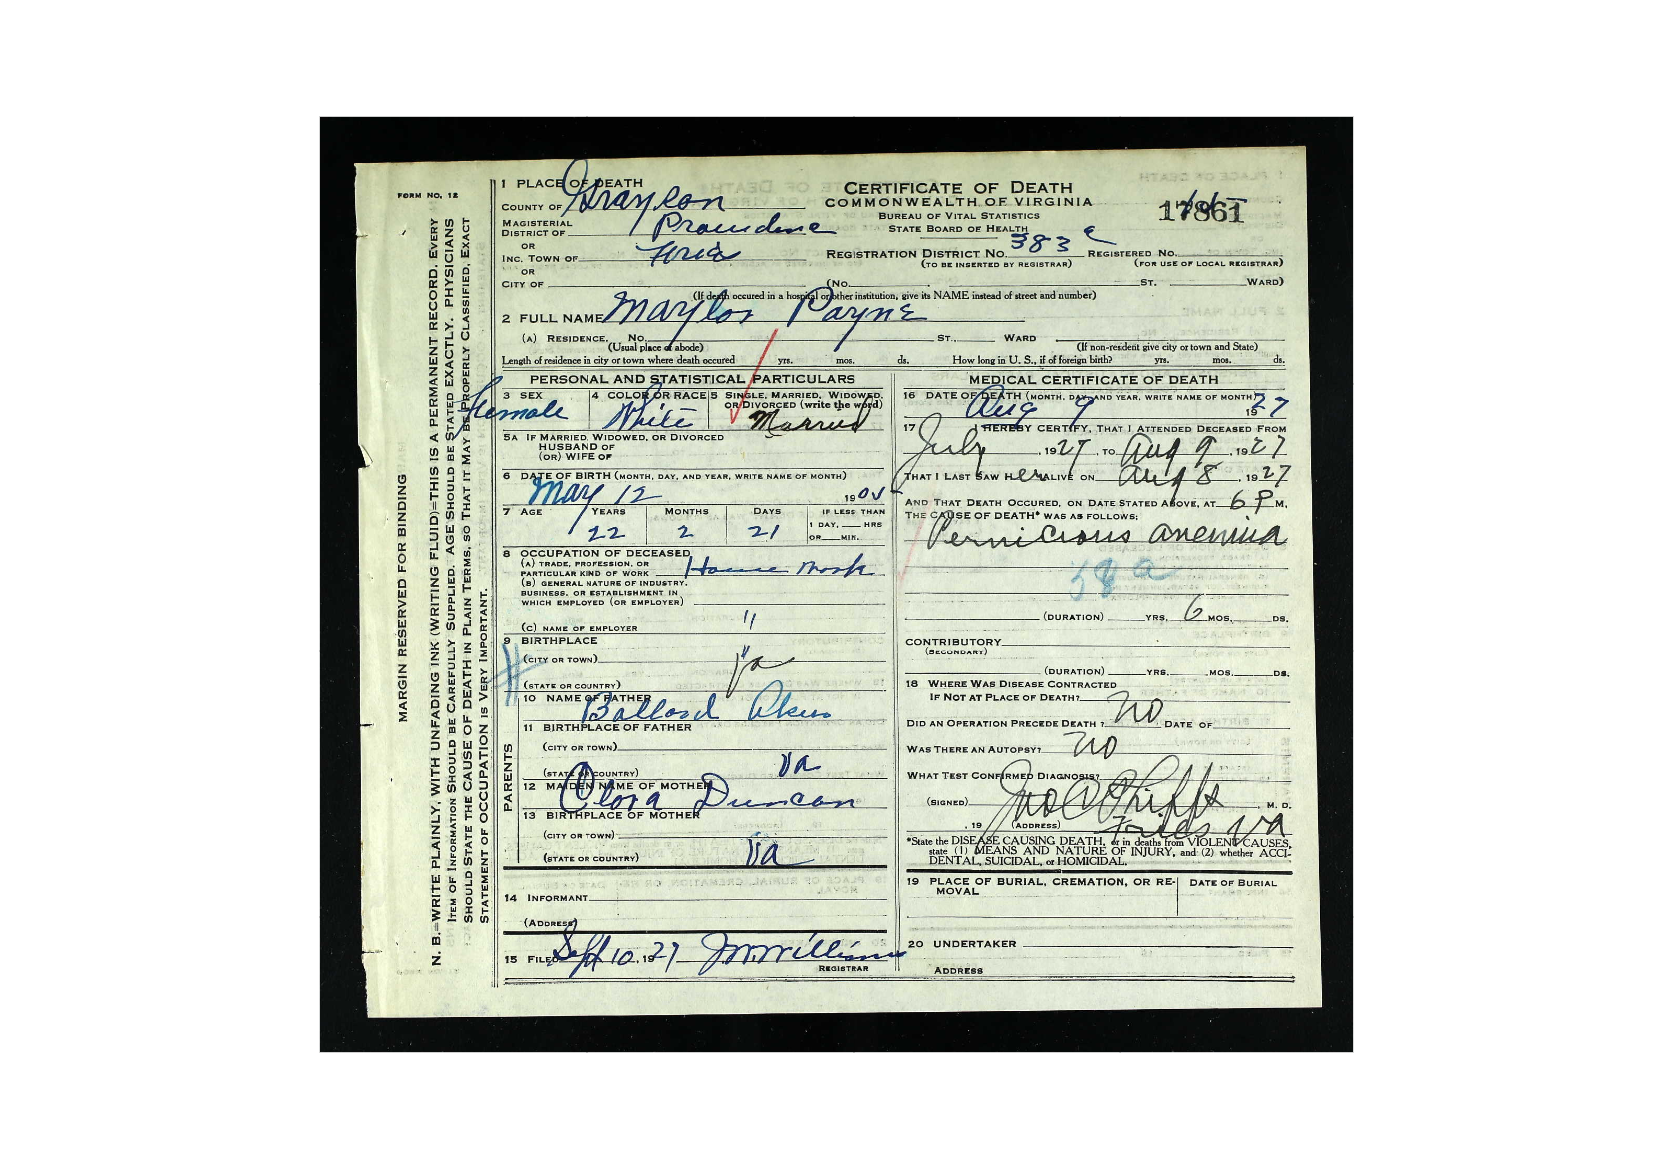 FORM NO. 12
MARGIN RESERVED FOR BINDING
N. B.=WRITE PLAINLY, WITH UNFADING INK (WRITING FLUID)=THIS IS A PERMANENT RECORD. EVERY
ITEM OF INFORMATION SHOULD BE CAREFULLY SUPPLIED. AGE SHOULD BE STATED EXACTLY. PHYSICIANS
SHOULD STATE THE CAUSE OF DEATH IN PLAIN TERMS, SO THAT IT MAY BE PROPERLY CLASSIFIED. EXACT
STATEMENT OF OCCUPATION IS VERY IMPORTANT.
1 PLACE OF DEATH
COUNTY OF Grayson
MAGISTERIAL
DISTRICT OF Providence
OR
INC. TOWN OF Fries
OR
CITY OF
CERTIFICATE OF DEATH
COMMONWEALTH OF VIRGINIA
BUREAU OF VITAL STATISTICS
STATE BOARD OF HEALTH
17861
REGISTRATION DISTRICT NO. 383 REGISTERED NO.
(TO BE INSERTED BY REGISTRAR) (FOR USE OF LOCAL REGISTRAR)
(NO. ST. WARD)
(If death occured in a hospital or other institution, give its NAME instead of street and number)
2 FULL NAME Payne
(A) RESIDENCE. No. ST., WARD
(Usual place of abode) (If non-resident give city or town and State)
Length of residence in city or town where death occured yrs. mos. ds. How long in U. S., if of foreign birth? yrs. mos. ds.
PERSONAL AND STATISTICAL PARTICULARS
3 SEX 4 COLOR OR RACE 5 SINGLE, MARRIED, WIDOWED,
OR DIVORCED (write the word)
Female White Married
5A IF MARRIED, WIDOWED, OR DIVORCED
HUSBAND OF
(OR) WIFE OF
6 DATE OF BIRTH (MONTH, DAY, AND YEAR, WRITE NAME OF MONTH)
May 12 1905
7 AGE YEARS MONTHS DAYS IF LESS THAN
1 DAY, HRS
OR MIN.
22 2 21
8 OCCUPATION OF DECEASED
(A) TRADE, PROFESSION, OR
PARTICULAR KIND OF WORK House Work
(B) GENERAL NATURE OF INDUSTRY,
BUSINESS, OR ESTABLISHMENT IN
WHICH EMPLOYED (OR EMPLOYER)
(C) NAME OF EMPLOYER "
9 BIRTHPLACE
(CITY OR TOWN) "
(STATE OR COUNTRY) Va
PARENTS
10 NAME OF FATHER Ballard Akers
11 BIRTHPLACE OF FATHER
(CITY OR TOWN)
(STATE OR COUNTRY) Va
12 MAIDEN NAME OF MOTHER Clora Duncan
13 BIRTHPLACE OF MOTHER
(CITY OR TOWN)
(STATE OR COUNTRY) Va
14 INFORMANT
(ADDRESS)
15 FILED Sept 10, 1927 J. M. Williams
REGISTRAR
MEDICAL CERTIFICATE OF DEATH
16 DATE OF DEATH (MONTH, DAY, AND YEAR, WRITE NAME OF MONTH)
Aug 9 1927
17 I HEREBY CERTIFY, THAT I ATTENDED DECEASED FROM
July, 1927, TO Aug 9, 1927
THAT I LAST SAW HER ALIVE ON Aug 8, 1927
AND THAT DEATH OCCURED, ON DATE STATED ABOVE, AT 6 P M.
THE CAUSE OF DEATH* WAS AS FOLLOWS:
Pernicious anemia
58 a
(DURATION) YRS. 6 MOS. DS.
CONTRIBUTORY
(SECONDARY)
(DURATION) YRS. MOS. DS.
18 WHERE WAS DISEASE CONTRACTED
IF NOT AT PLACE OF DEATH?
DID AN OPERATION PRECEDE DEATH? No DATE OF
WAS THERE AN AUTOPSY? No
WHAT TEST CONFIRMED DIAGNOSIS?
(SIGNED) Jno A Phipps, M. D.
, 19 (ADDRESS) Fries Va
*State the DISEASE CAUSING DEATH, or in deaths from VIOLENT CAUSES,
state (1) MEANS AND NATURE OF INJURY, and (2) whether ACCI-
DENTAL, SUICIDAL, or HOMICIDAL.
19 PLACE OF BURIAL, CREMATION, OR RE-
MOVAL
DATE OF BURIAL
20 UNDERTAKER
ADDRESS